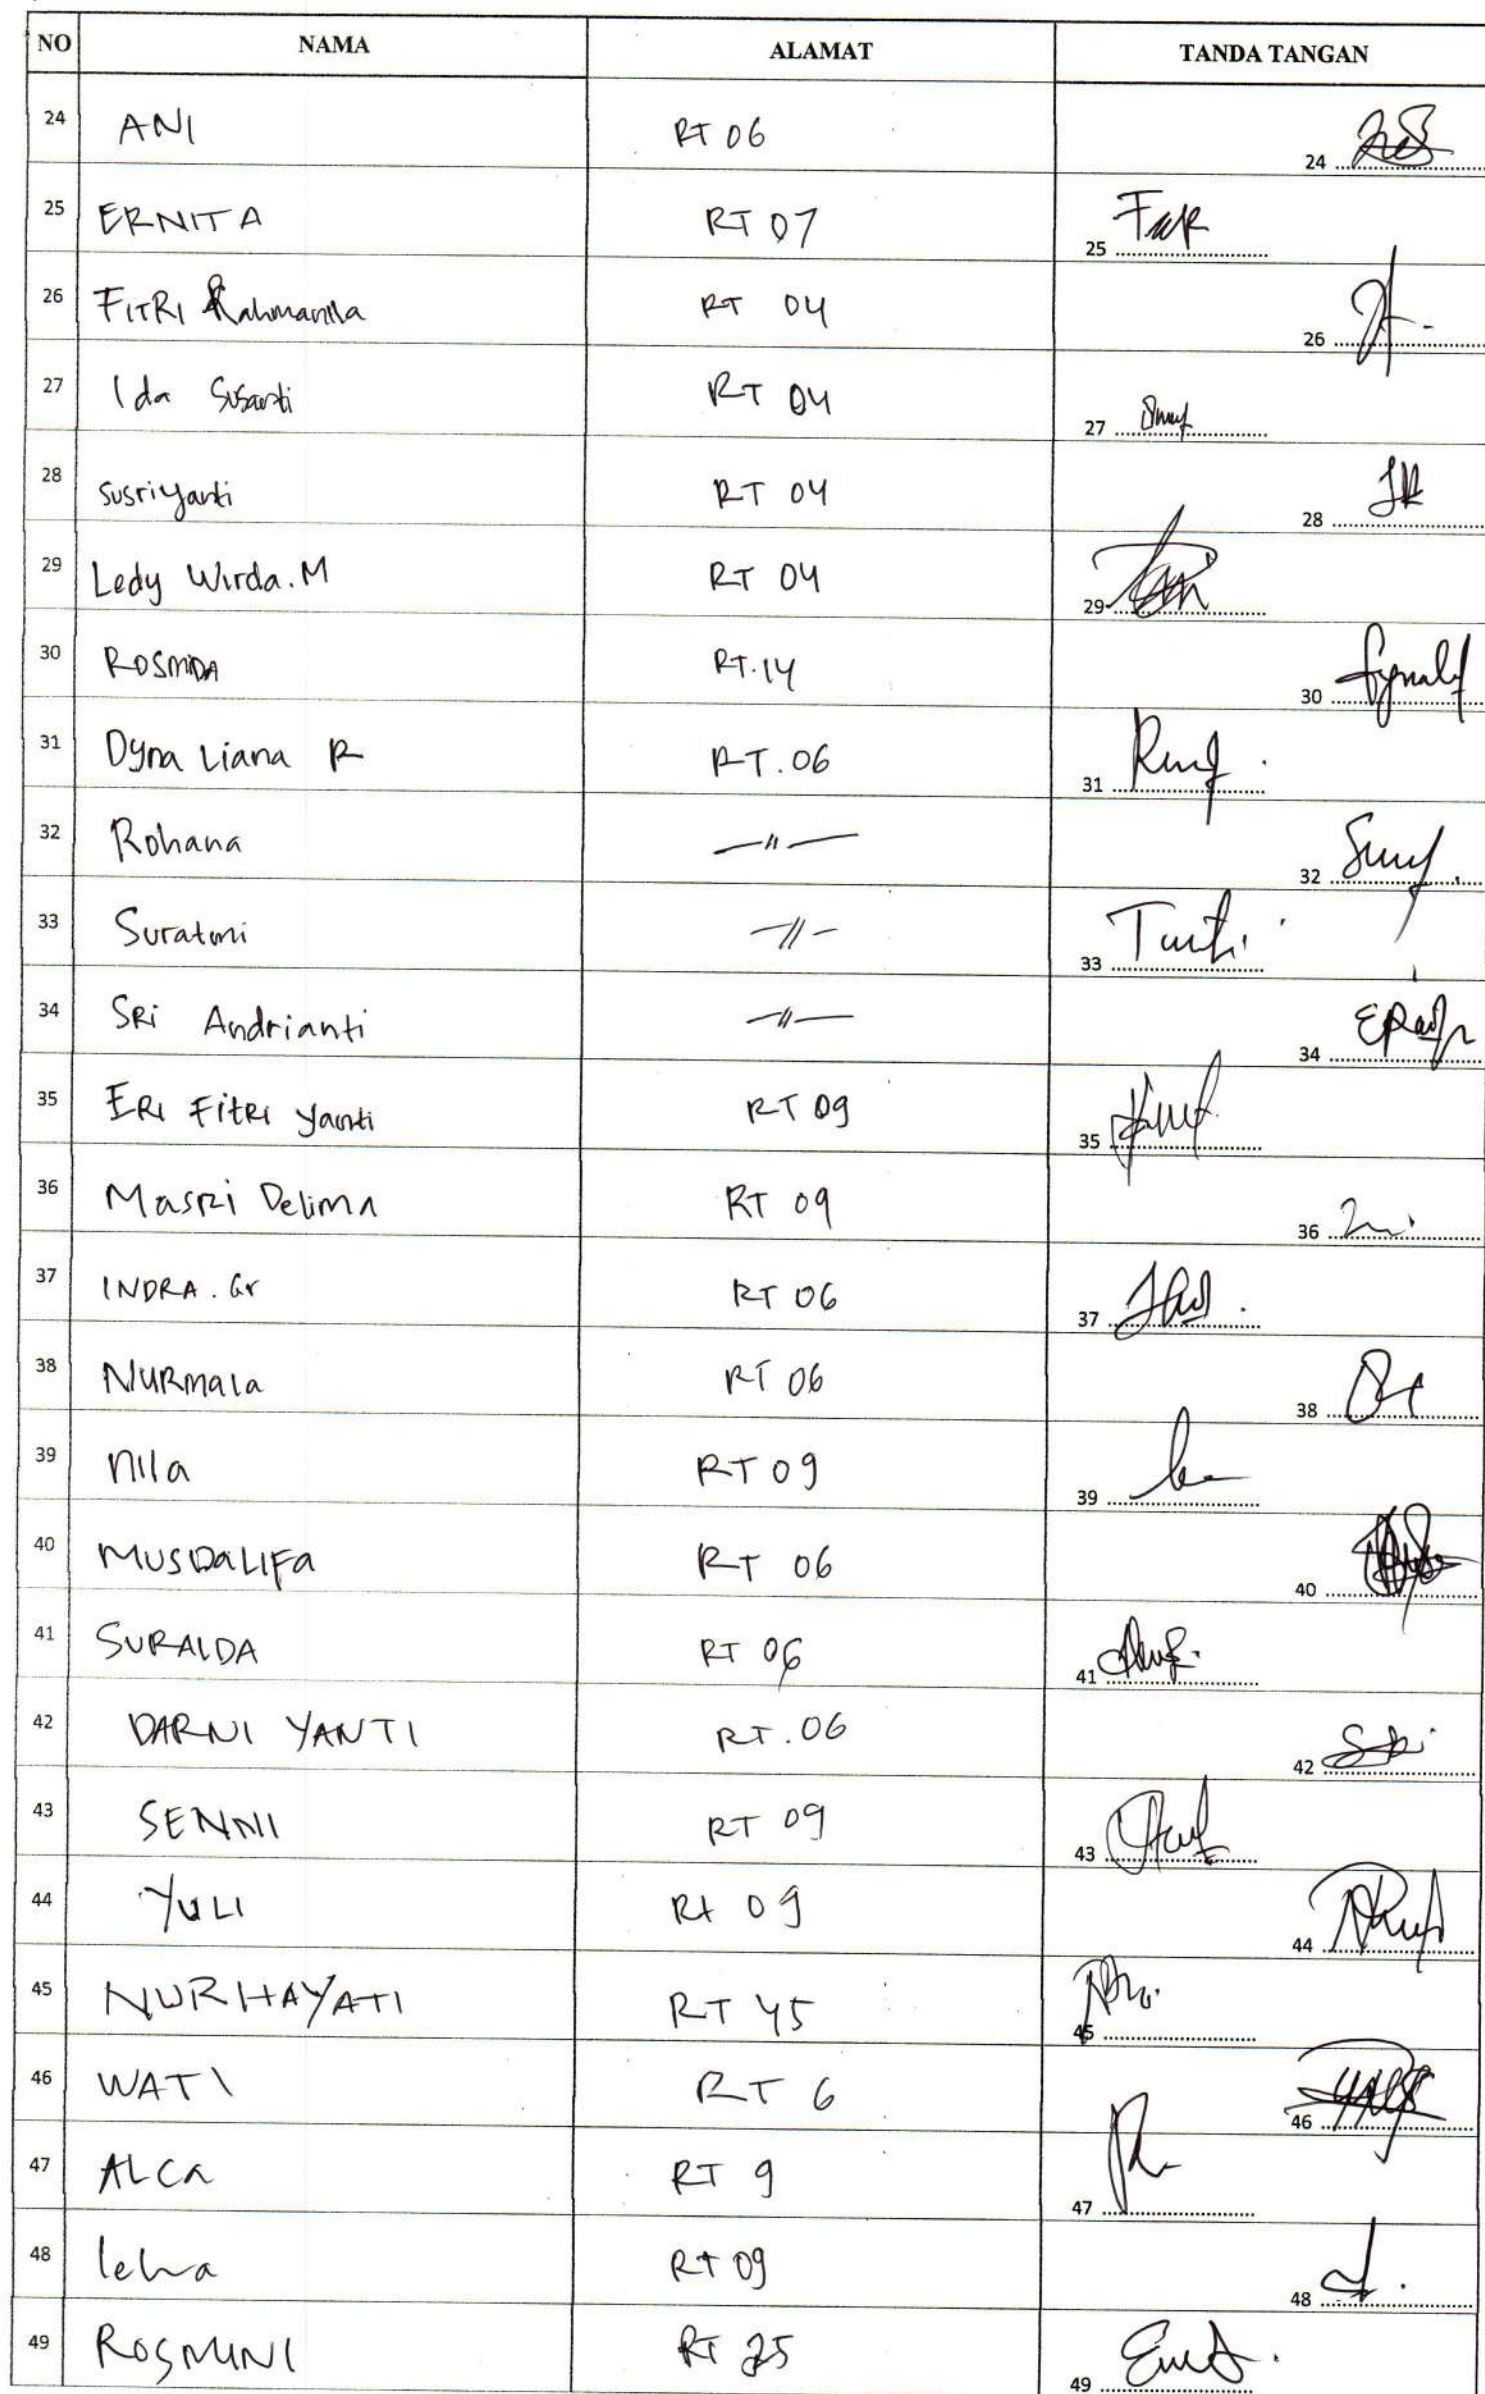 NO NAMA ALAMAT TANDA TANGAN
24 ANI RT 06 24
25 ERNITA RT 07 25
26 FITRI Rahmanilla RT 04 26
27 Ida Susanti RT 04 27
28 Susriyanti RT 04 28
29 Ledy Wirda.M RT 04 29
30 ROSMIDA RT.14 30
31 Dyna Liana R RT.06 31
32 Rohana —〃— 32
33 Suratmi —〃— 33
34 SRi Andrianti —〃— 34
35 ERI FitRI yanti RT 09 35
36 MasRi Delima RT 09 36
37 INDRA. Gr RT 06 37
38 NURmala RT 06 38
39 nila RT 09 39
40 MUSDALIFa RT 06 40
41 SURAIDA RT 06 41
42 DARNI YANTI RT.06 42
43 SENNI RT 09 43
44 YULI Rt 09 44
45 NURHAYATI RT 45 45
46 WATI RT 6 46
47 ALCA RT 9 47
48 leha RT 09 48
49 ROSMINI RT 25 49